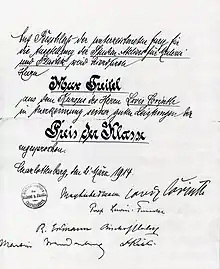 Auf Vorschlag der unterzeichneten Jury für
die Ausstellung der Studien-Ateliers für Malerei
und Plastik wird hierdurch
Herrn
Max Freitel
aus dem Kursus des Herrn Lovis Corinth
in Anerkennung seiner guten Leistungen der
Preis der Klasse
zugesprochen.
Charlottenburg, den 21. März 1914
Lovis Corinth
Prof. Lewin-Funcke
R. Erdmann
Martin Brandenburg